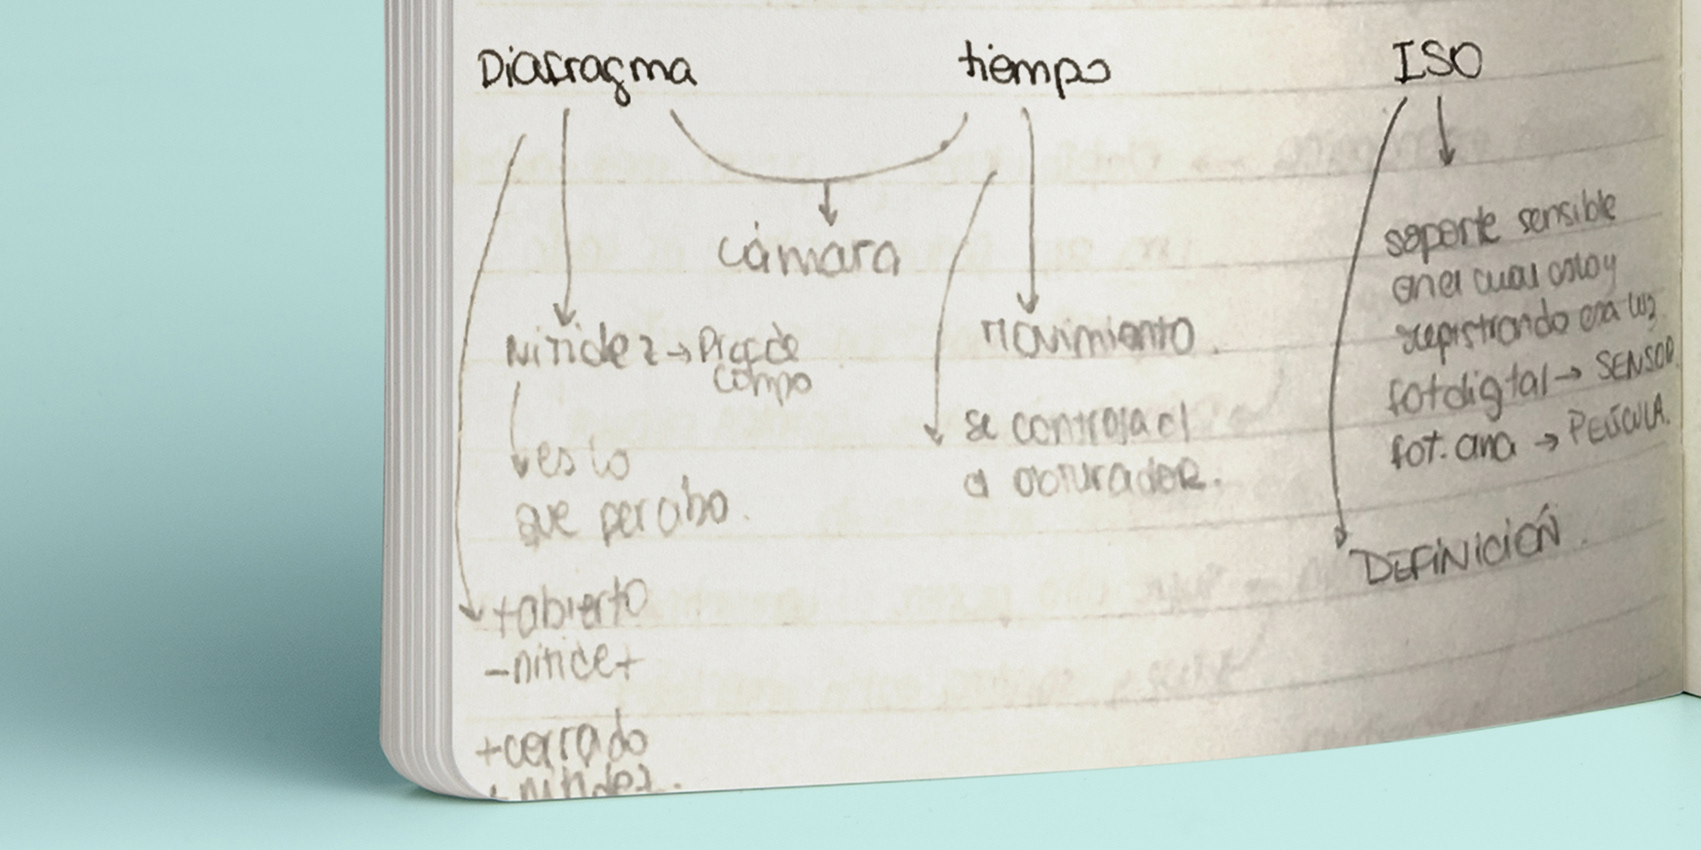 Diafragma
tiempo
ISO
cámara
Nitidez → Prof de
campo
es lo
que percibo.
+ abierto
- nitidez
+ cerrado
+ nitidez.
movimiento.
se controla cl
a obturador.
soporte sensible
en el cual estoy
registrando esa luz
fot digital → SENSOR.
fot. ana → PELÍCULA.
DEFINICIÓN.